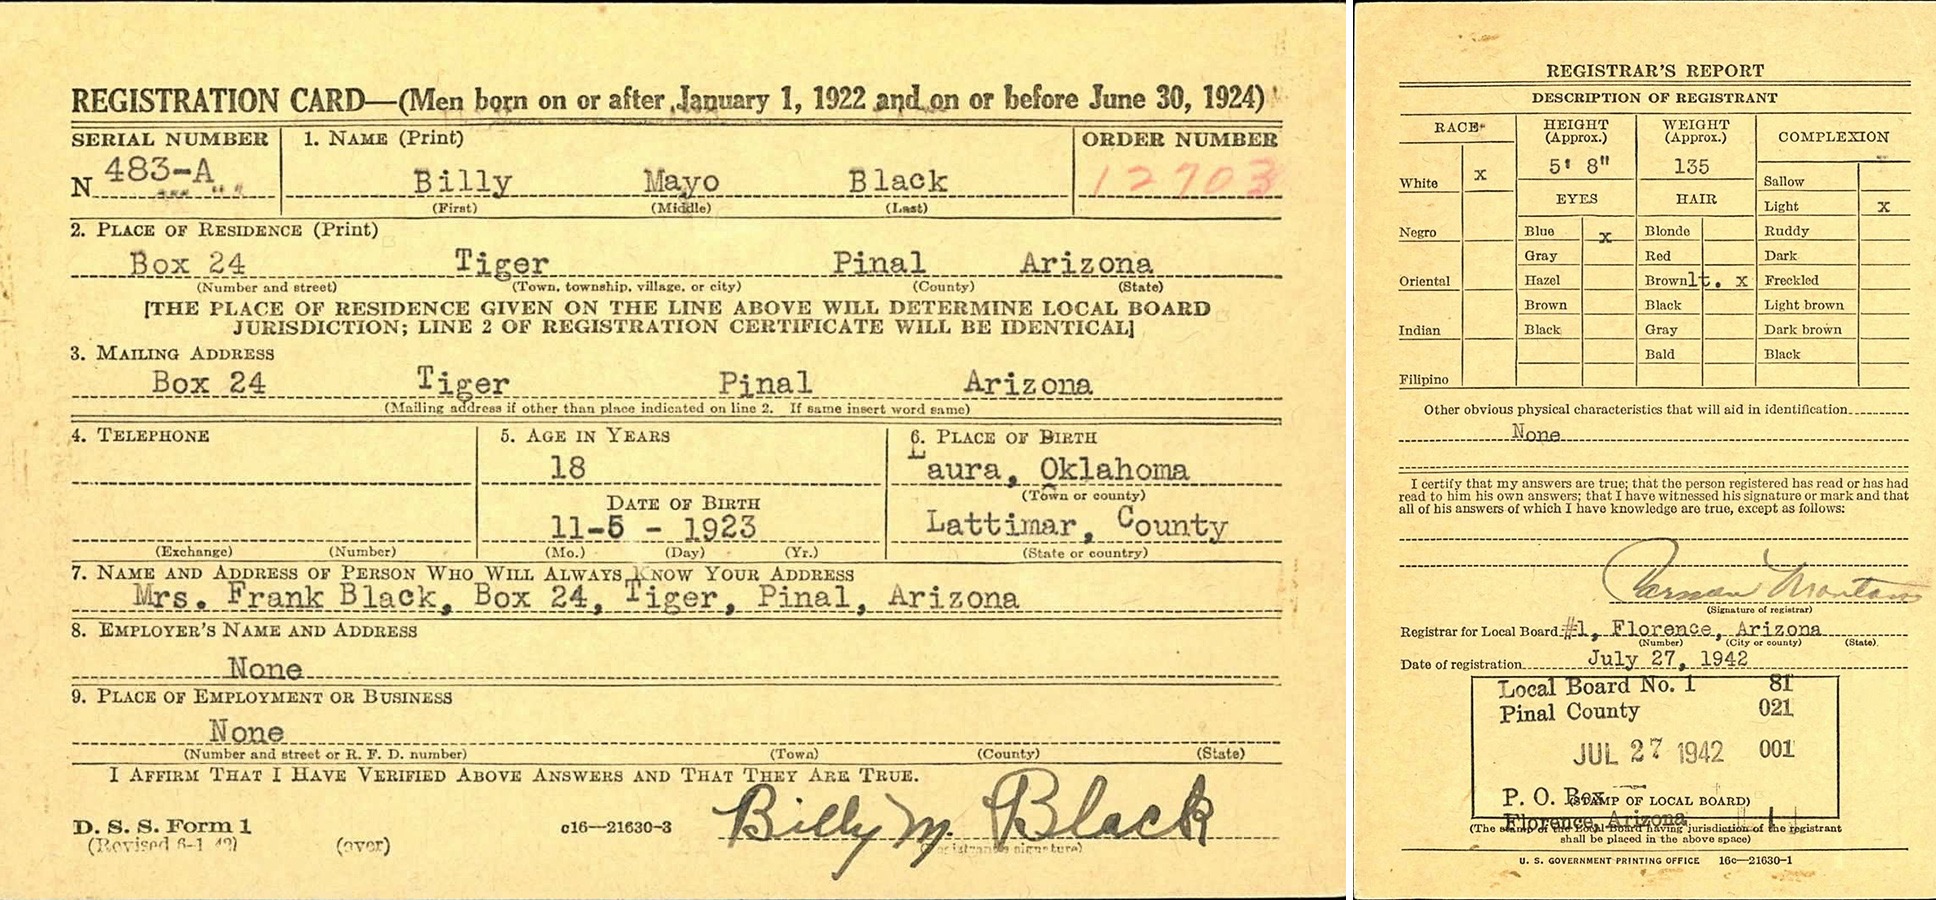 REGISTRATION CARD—(Men born on or after January 1, 1922 and on or before June 30, 1924)
SERIAL NUMBER 1. NAME (Print) ORDER NUMBER
N 483-A Billy Mayo Black 12703
(First) (Middle) (Last)
2. PLACE OF RESIDENCE (Print)
Box 24 Tiger Pinal Arizona
(Number and street) (Town, township, village, or city) (County) (State)
[THE PLACE OF RESIDENCE GIVEN ON THE LINE ABOVE WILL DETERMINE LOCAL BOARD
JURISDICTION; LINE 2 OF REGISTRATION CERTIFICATE WILL BE IDENTICAL]
3. MAILING ADDRESS
Box 24 Tiger Pinal Arizona
(Mailing address if other than place indicated on line 2. If same insert word same)
4. TELEPHONE 5. AGE IN YEARS 6. PLACE OF BIRTH
18 Laura, Oklahoma
DATE OF BIRTH (Town or county)
11-5 - 1923 Lattimar, County
(Exchange) (Number) (Mo.) (Day) (Yr.) (State or country)
7. NAME AND ADDRESS OF PERSON WHO WILL ALWAYS KNOW YOUR ADDRESS
Mrs. Frank Black, Box 24, Tiger, Pinal, Arizona
8. EMPLOYER'S NAME AND ADDRESS
None
9. PLACE OF EMPLOYMENT OR BUSINESS
None
(Number and street or R. F. D. number) (Town) (County) (State)
I AFFIRM THAT I HAVE VERIFIED ABOVE ANSWERS AND THAT THEY ARE TRUE.
Billy M. Black
D. S. S. Form 1 c16—21630-3
(Revised 6-1-42) (over) (Registrant's signature)
REGISTRAR'S REPORT
DESCRIPTION OF REGISTRANT
RACE HEIGHT (Approx.) WEIGHT (Approx.) COMPLEXION
5' 8" 135
White x Sallow
EYES HAIR Light x
Negro Blue x Blonde Ruddy
Gray Red Dark
Oriental Hazel Brown lt. x Freckled
Brown Black Light brown
Indian Black Gray Dark brown
Bald Black
Filipino
Other obvious physical characteristics that will aid in identification
None
I certify that my answers are true; that the person registered has read or has had
read to him his own answers; that I have witnessed his signature or mark and that
all of his answers of which I have knowledge are true, except as follows:
(Signature of registrar)
Registrar for Local Board #1, Florence, Arizona
(Number) (City or county) (State)
Date of registration July 27, 1942
Local Board No. 1 81
Pinal County 021
JUL 27 1942 001
P. O. Box
(STAMP OF LOCAL BOARD)
Florence, Arizona
(The stamp of the Local Board having jurisdiction of the registrant
shall be placed in the above space)
U. S. GOVERNMENT PRINTING OFFICE 16c—21630-1